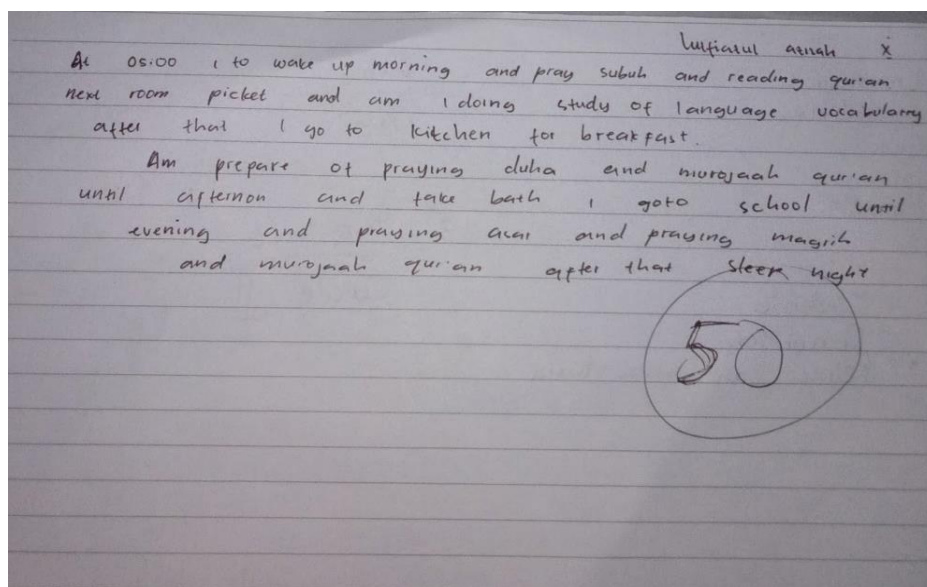 lulfiatul atnah x
At 05.00 i to wake up morning and pray subuh and reading qur'an
next room picket and am I doing study of language vocabularry
after that I go to kitchen for breakfast.
Am prepare of praying duha and murojaah qur'an
until afternon and take bath i goto school until
evening and praying acar and praying magrib
and murojaah qur'an after that sleep night
50